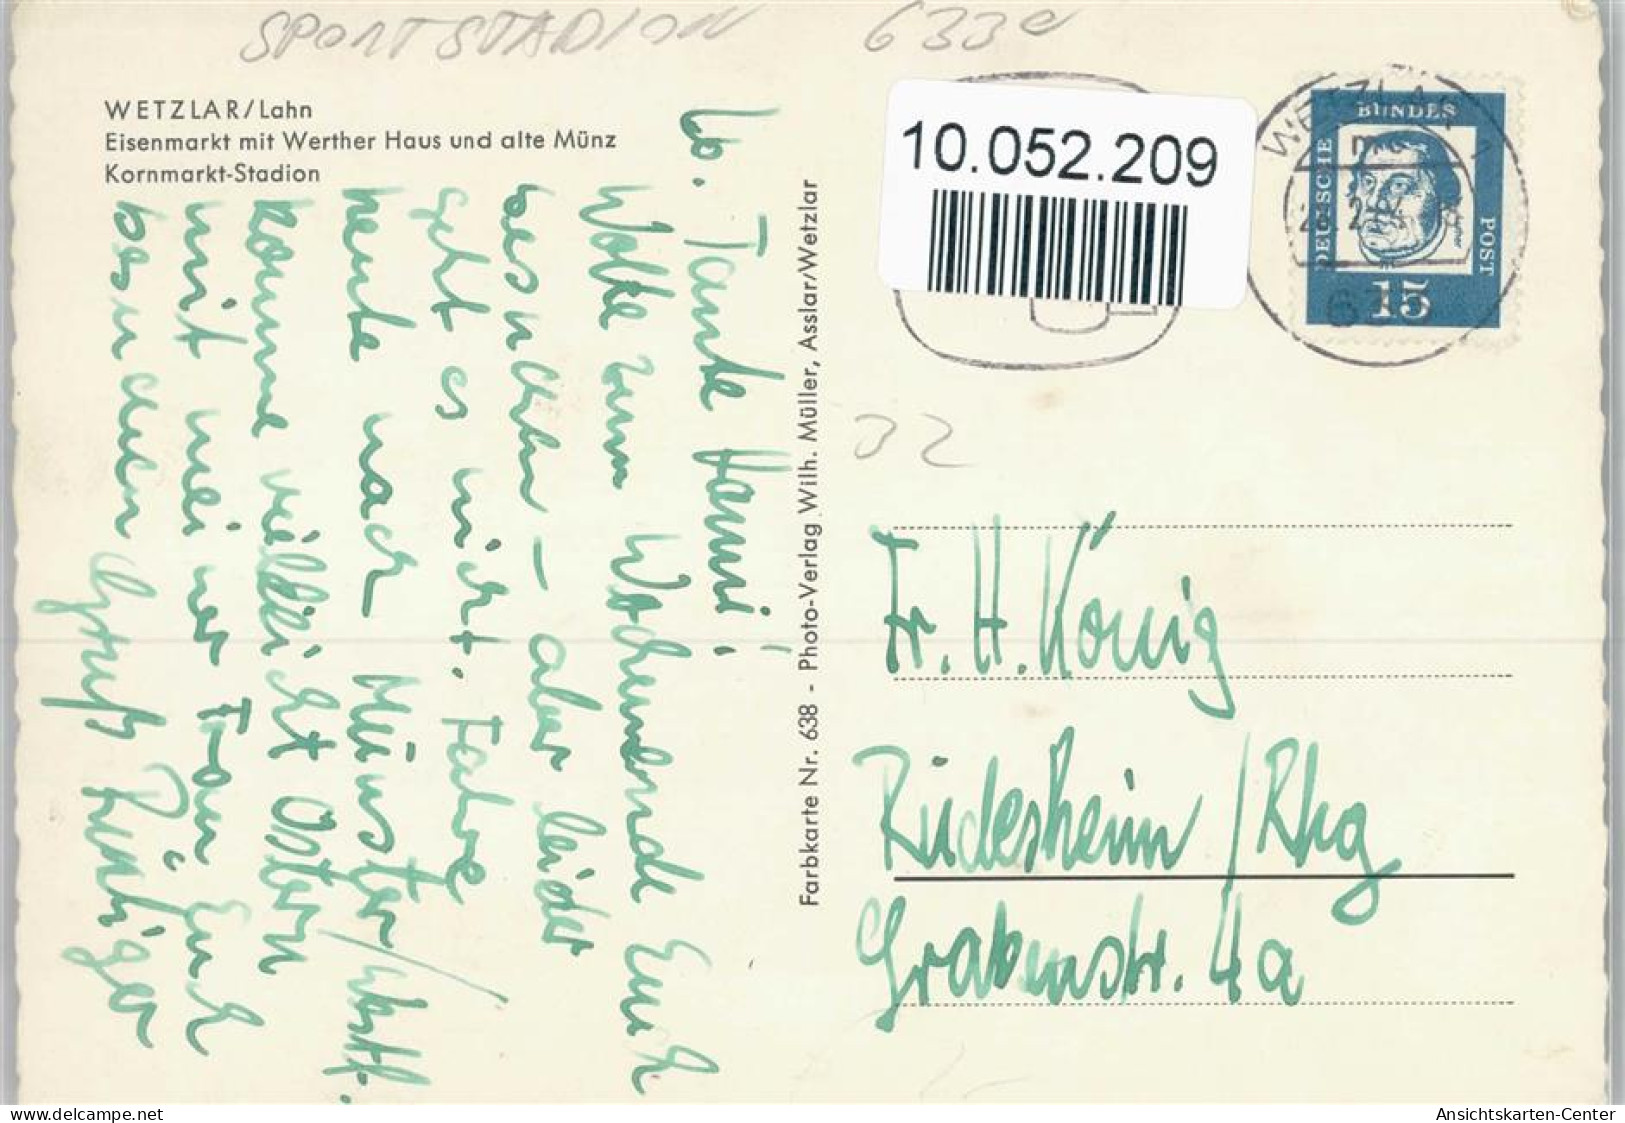 SPORTSTADION
633e
WETZLAR/Lahn
Eisenmarkt mit Werther Haus und alte Münz
Kornmarkt-Stadion
Lb. Tante Hanni!
Wolte zum Wochenende Euch
besuchen - aber leider
geht es nicht. Fahre
heute nach Münster/Westf.
komme vielleicht Ostern
mit meiner Frau Euch
besuchen Gruß Rüdiger
Farbkarte Nr. 638 - Photo-Verlag Wilh. Müller, Asslar/Wetzlar
10.052.209
WETZLAR
DEUTSCHE
BUNDES
POST
15
Fr. H. König
Rüdesheim / Rhg
Grabenstr. 4a
www.delcampe.net
Ansichtskarten-Center